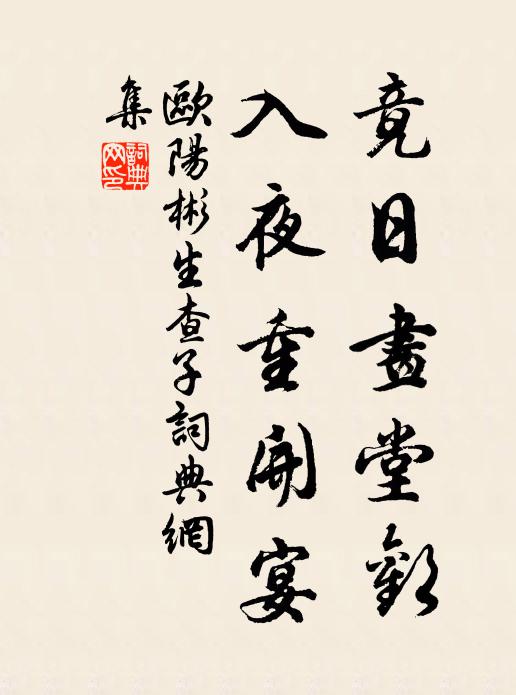 竟日畫堂歡
入夜重開宴
歐陽彬生查子詞典網
集
詞典網印